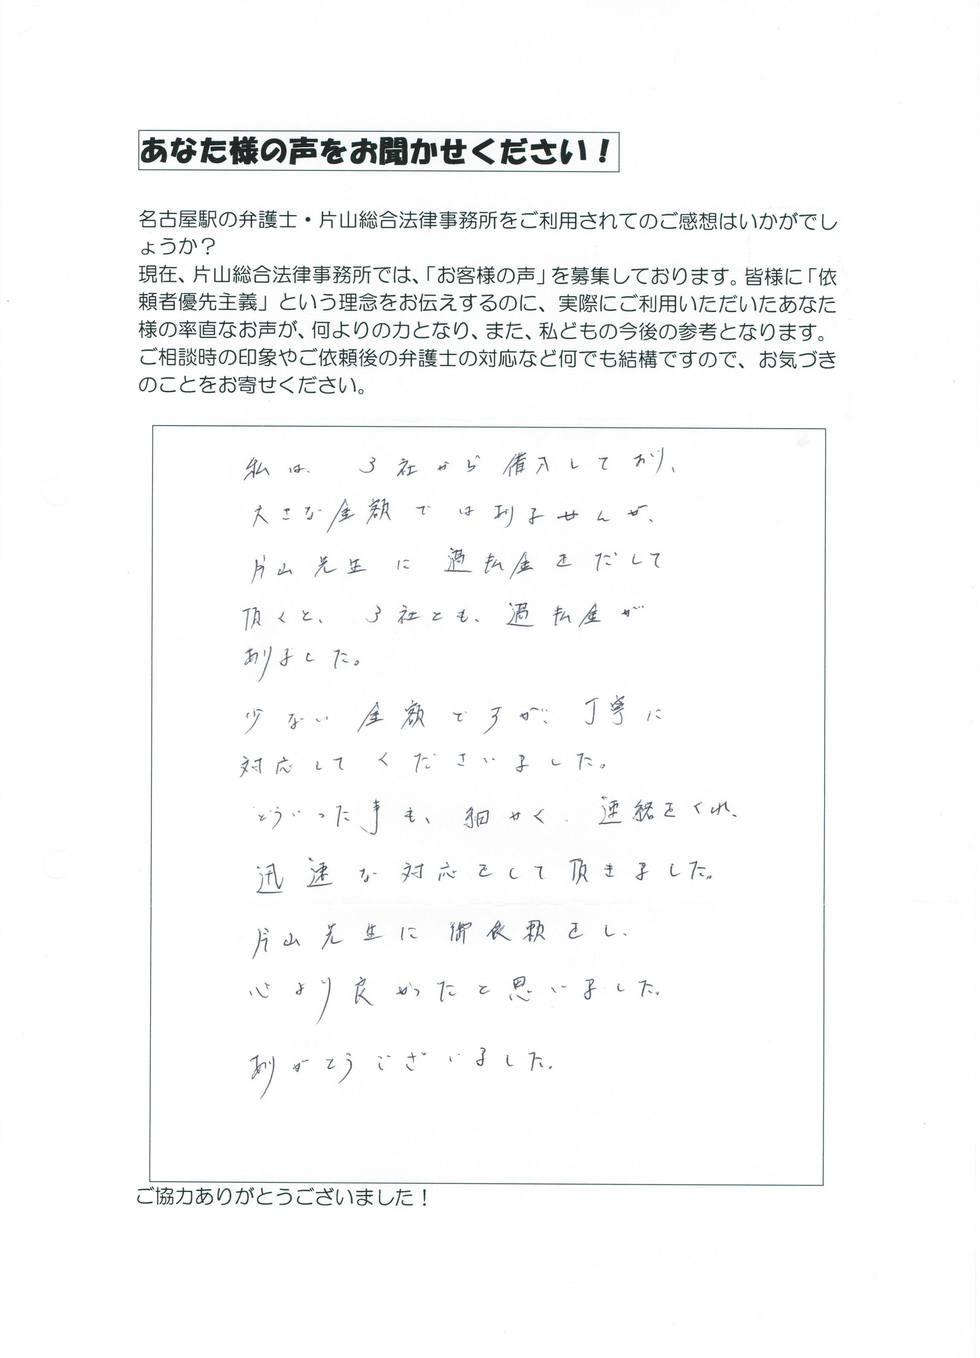 あなた様の声をお聞かせください！
名古屋駅の弁護士・片山総合法律事務所をご利用されてのご感想はいかがでし
ょうか？
現在、片山総合法律事務所では、「お客様の声」を募集しております。皆様に「依
頼者優先主義」という理念をお伝えするのに、実際にご利用いただいたあなた
様の率直なお声が、何よりの力となり、また、私どもの今後の参考となります。
ご相談時の印象やご依頼後の弁護士の対応など何でも結構ですので、お気づき
のことをお寄せください。
私は、３社から借入しており、
大きな金額ではありませんが、
片山先生に過払金をだして
頂くと、３社とも、過払金が
ありました。
少ない金額ですが、丁寧に
対応してくださいました。
どういった事も、細かく、連絡をくれ、
迅速な対応をして頂きました。
片山先生に御依頼をし、
心より良かったと思いました。
ありがとうございました。
ご協力ありがとうございました！